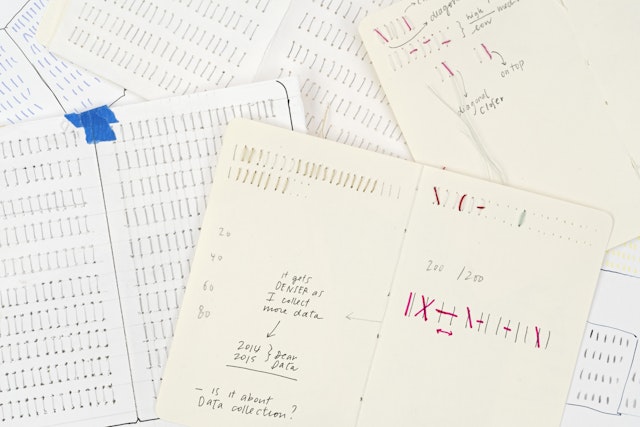 diagonal
high
low
on top
diagonal
closer
20
40
60
80
it gets
DENSER as
I collect
more data
2014 } Dear
2015 } Data
- is it about
Data collection?
200 /200